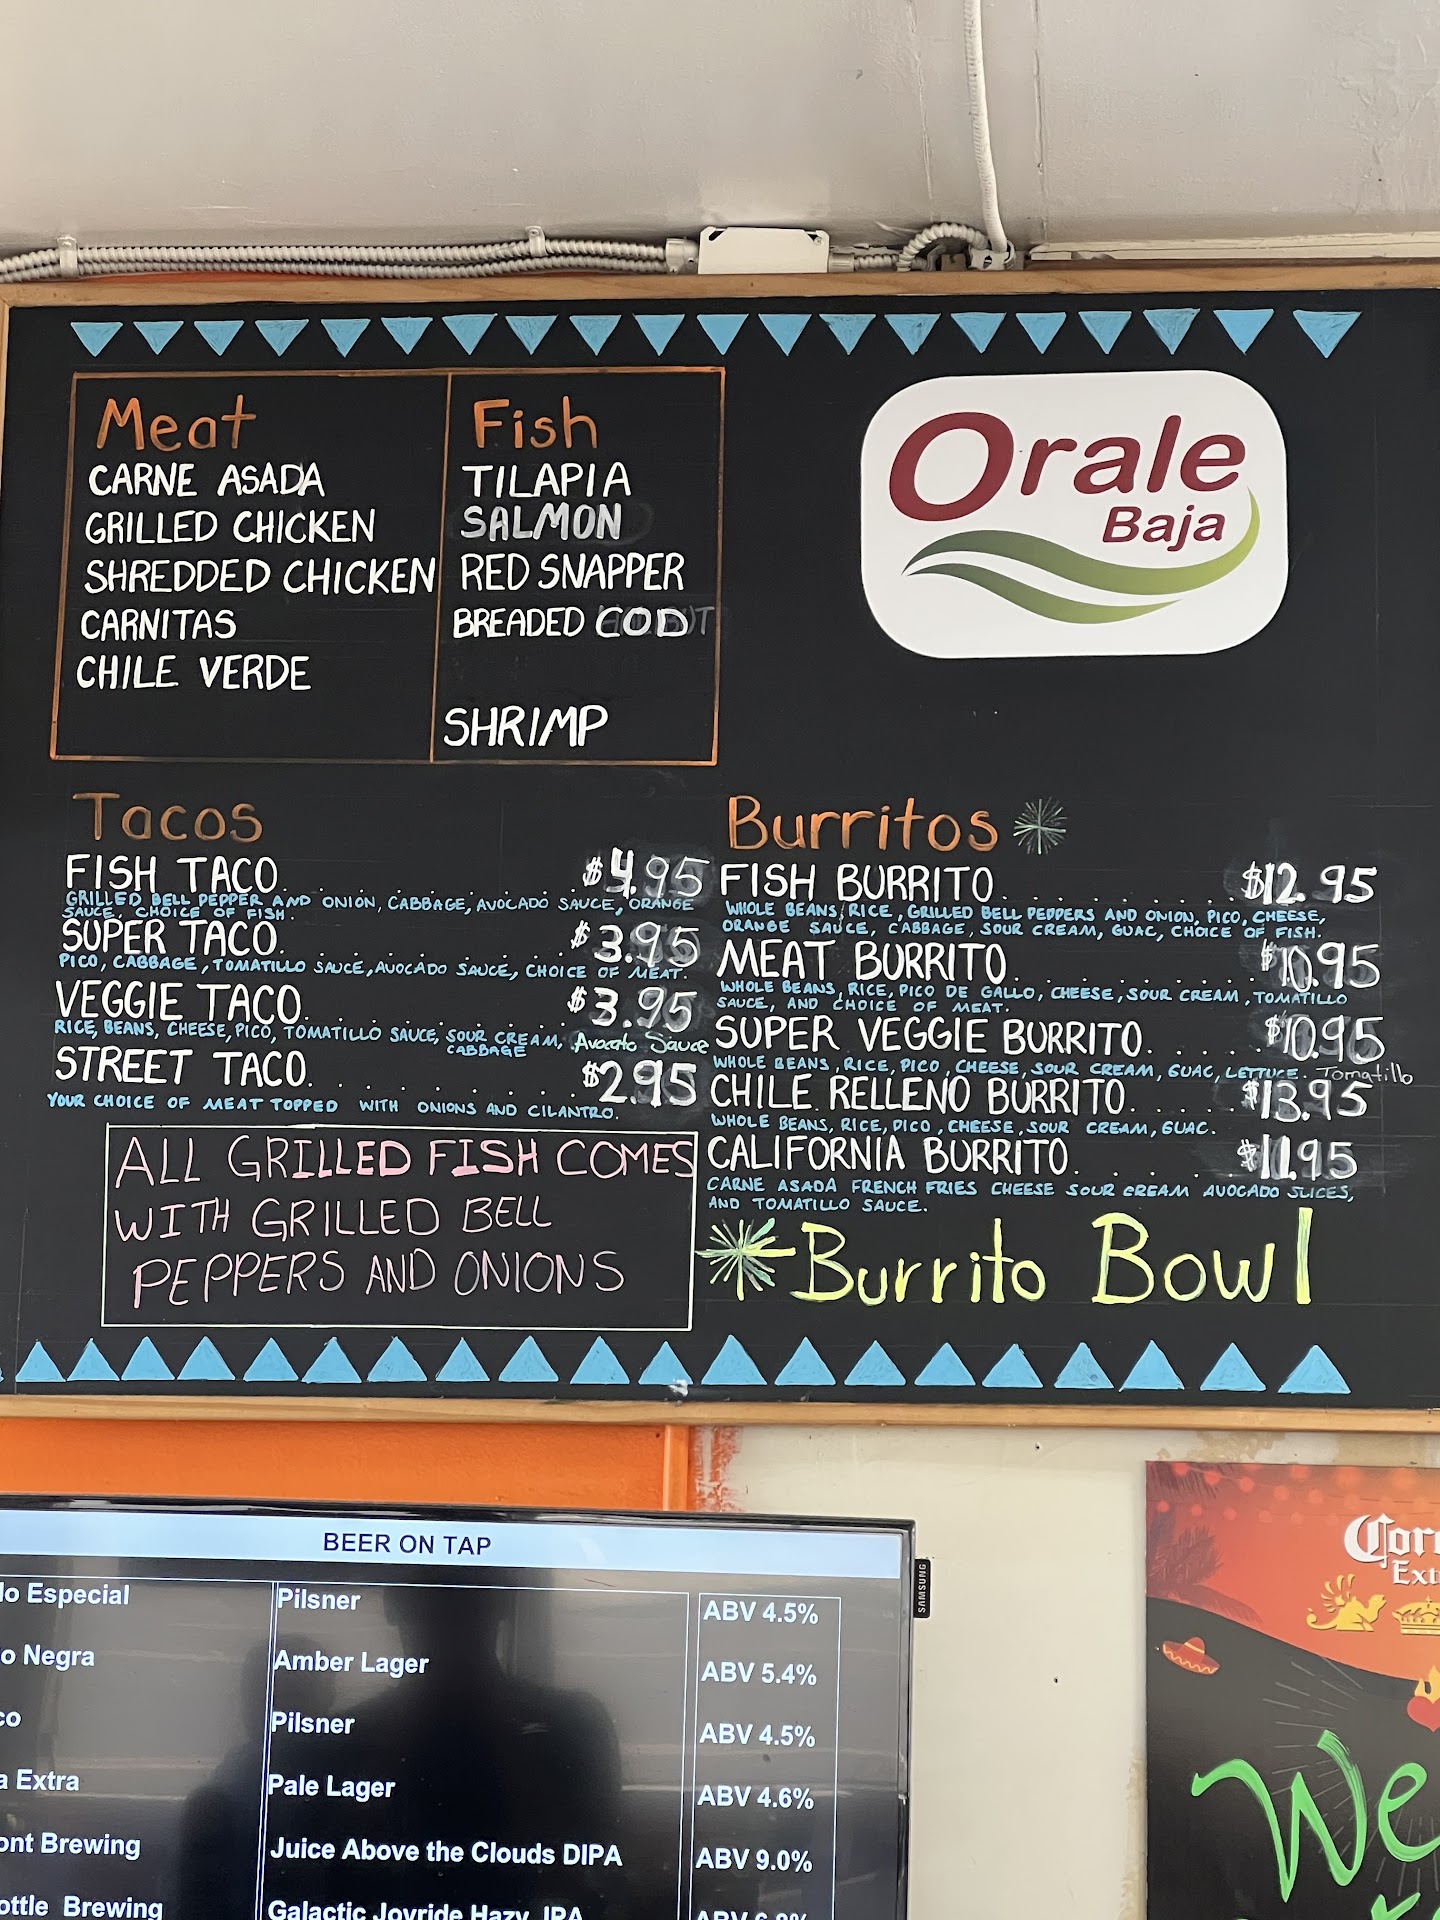 Meat
CARNE ASADA
GRILLED CHICKEN
SHREDDED CHICKEN
CARNITAS
CHILE VERDE
Fish
TILAPIA
SALMON
RED SNAPPER
BREADED COD
SHRIMP
Orale
Baja
Tacos
FISH TACO. . . . . . . . . . . $4.95
GRILLED BELL PEPPER AND ONION, CABBAGE, AVOCADO SAUCE, ORANGE
SAUCE, CHOICE OF FISH.
SUPER TACO. . . . . . . . . . . $3.95
PICO, CABBAGE, TOMATILLO SAUCE, AVOCADO SAUCE, CHOICE OF MEAT.
VEGGIE TACO. . . . . . . . . . $3.95
RICE, BEANS, CHEESE, PICO, TOMATILLO SAUCE, SOUR CREAM, Avocato Sauce
CABBAGE
STREET TACO. . . . . . . . . . $2.95
YOUR CHOICE OF MEAT TOPPED WITH ONIONS AND CILANTRO.
ALL GRILLED FISH COMES
WITH GRILLED BELL
PEPPERS AND ONIONS
Burritos
FISH BURRITO. . . . . . . . $12.95
WHOLE BEANS, RICE, GRILLED BELL PEPPERS AND ONION, PICO, CHEESE,
ORANGE SAUCE, CABBAGE, SOUR CREAM, GUAC, CHOICE OF FISH.
MEAT BURRITO. . . . . . . . $10.95
WHOLE BEANS, RICE, PICO DE GALLO, CHEESE, SOUR CREAM, TOMATILLO
SAUCE, AND CHOICE OF MEAT.
SUPER VEGGIE BURRITO. . . . . $10.95
WHOLE BEANS, RICE, PICO, CHEESE, SOUR CREAM, GUAC, LETTUCE. Tomatillo
CHILE RELLENO BURRITO. . . . . $13.95
WHOLE BEANS, RICE, PICO, CHEESE, SOUR CREAM, GUAC.
CALIFORNIA BURRITO. . . . . $11.95
CARNE ASADA FRENCH FRIES CHEESE SOUR CREAM AVOCADO SLICES,
AND TOMATILLO SAUCE.
Burrito Bowl
BEER ON TAP
lo Especial Pilsner ABV 4.5%
o Negra Amber Lager ABV 5.4%
co Pilsner ABV 4.5%
a Extra Pale Lager ABV 4.6%
ont Brewing Juice Above the Clouds DIPA ABV 9.0%
ottle Brewing Galactic Joyride Hazy IPA
SAMSUNG
Coro
Ext
We